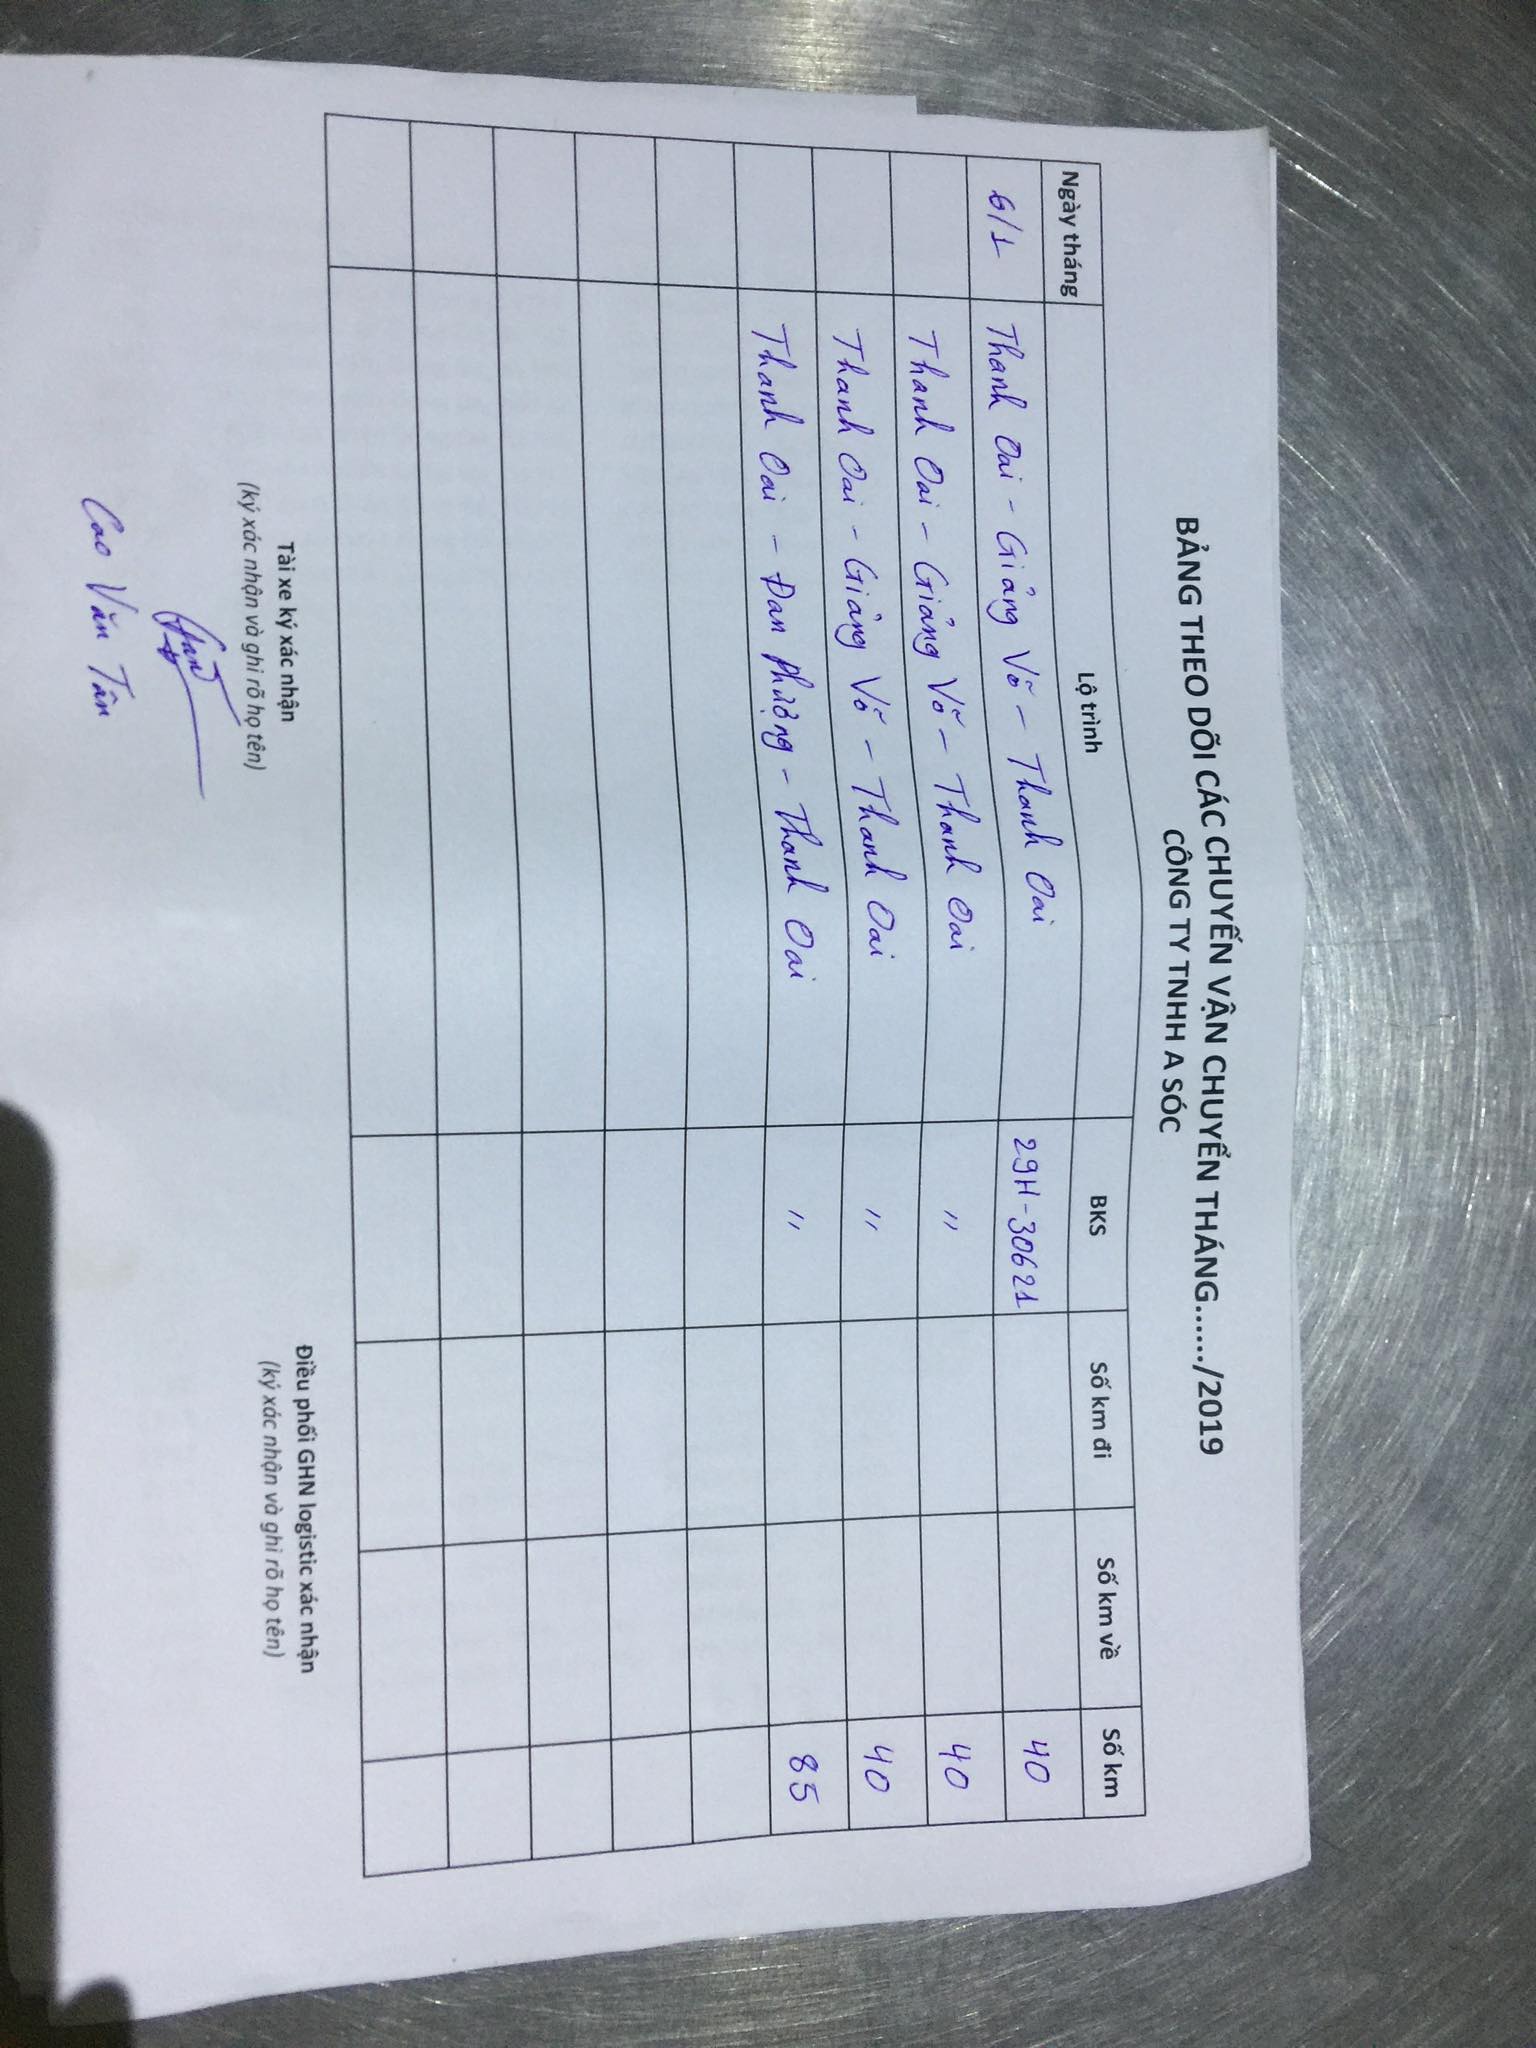 BẢNG THEO DÕI CÁC CHUYẾN VẬN CHUYỂN THÁNG....../2019
CÔNG TY TNHH A SÓC
Ngày tháng Lộ trình BKS Số km đi Số km về Số km
6/1 Thanh Oai - Giảng Võ - Thanh Oai 29H-30621 40
Thanh Oai - Giảng Võ - Thanh Oai " 40
Thanh Oai - Giảng Võ - Thanh Oai " 40
Thanh Oai - Đan Phượng - Thanh Oai " 85
Tài xe ký xác nhận Điều phối GHN logistic xác nhận
(ký xác nhận và ghi rõ họ tên) (ký xác nhận và ghi rõ họ tên)
Cao Văn Tân